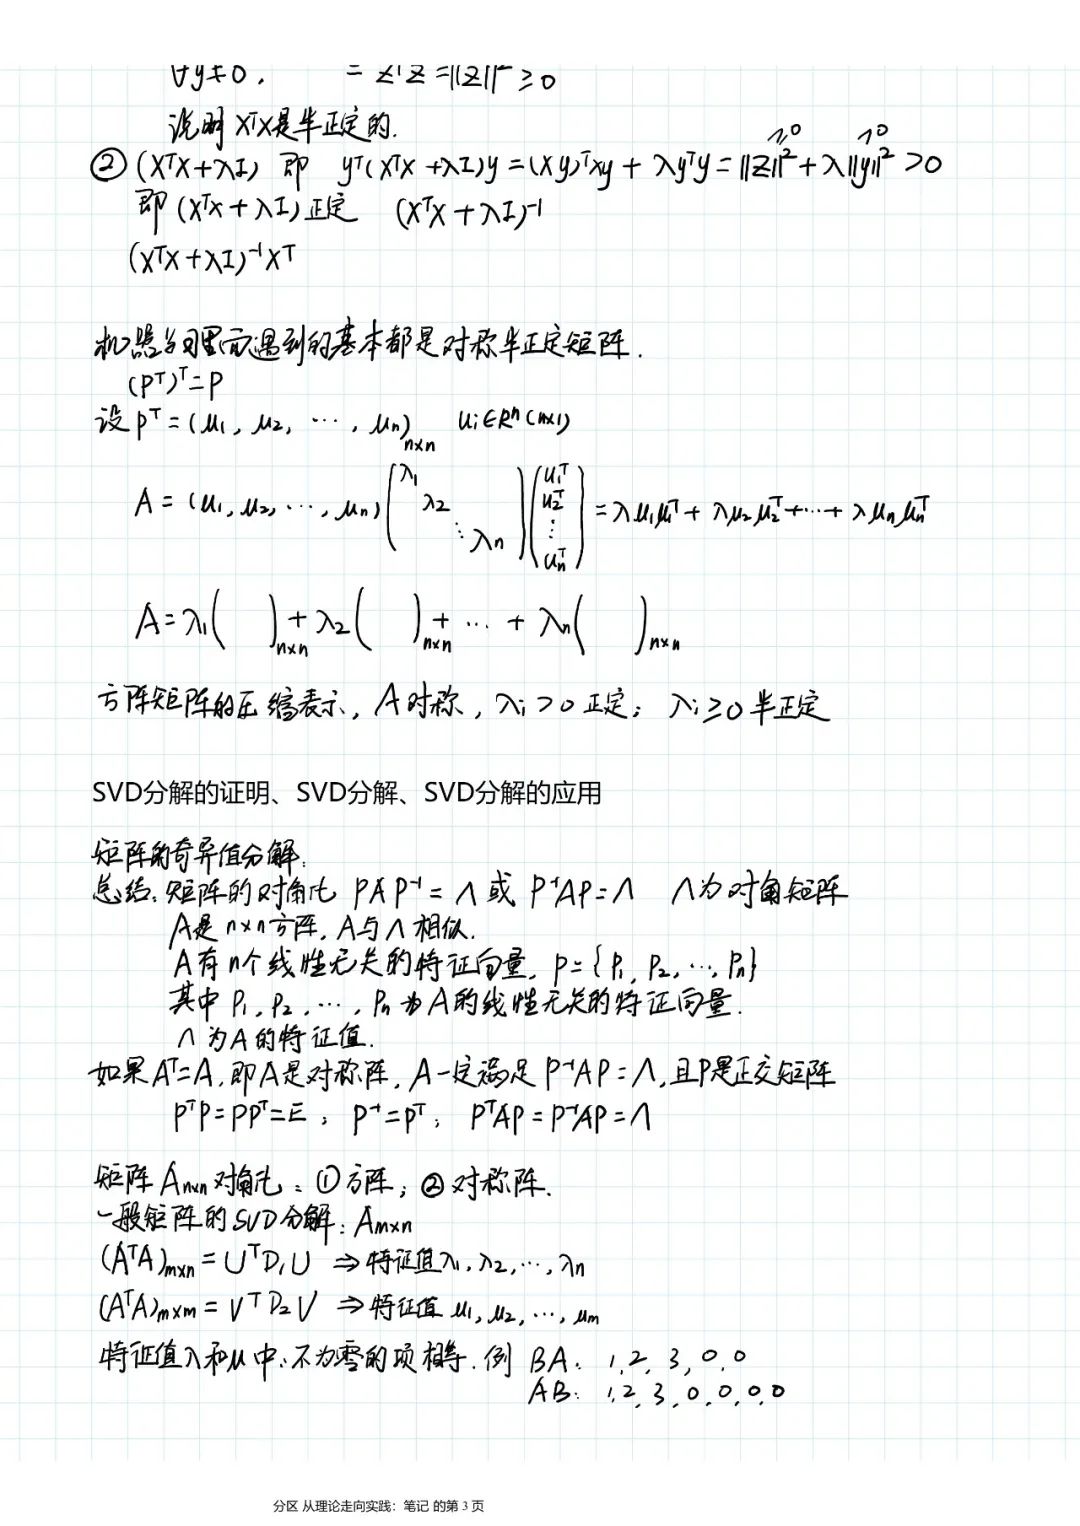 ∀y≠0, = ZᵀZ =||Z||² ≥0
说明 XᵀX是半正定的.
② (XᵀX+λI) 即 yᵀ(XᵀX+λI)y = (Xy)ᵀXy + λyᵀy = ||Z||² + λ||y||² >0
即 (XᵀX+λI)正定 (XᵀX+λI)⁻¹
(XᵀX+λI)⁻¹Xᵀ
机器学习里面遇到的基本都是对称半正定矩阵.
(Pᵀ)ᵀ=P
设 Pᵀ=(μ₁, μ₂, ⋯, μₙ)ₙₓₙ uᵢ∈Rⁿ(n×1)
A = (u₁, μ₂, ⋯, μₙ) (λ₁ λ₂ ⋱ λₙ) (u₁ᵀ u₂ᵀ ⋮ uₙᵀ) = λμ₁μ₁ᵀ + λμ₂μ₂ᵀ+⋯+ λμₙμₙᵀ
A=λ₁( )ₙₓₙ+λ₂( )ₙₓₙ+ ⋯ + λₙ( )ₙₓₙ
方阵矩阵的压缩表示, A对称, λᵢ>0 正定; λᵢ≥0 半正定
SVD分解的证明、SVD分解、SVD分解的应用
矩阵的奇异值分解:
总结: 矩阵的对角化 PAP⁻¹ = Λ 或 P⁻¹AP=Λ Λ为对角矩阵
A是n×n方阵, A与Λ相似.
A有n个线性无关的特征向量, P={P₁, P₂, ⋯, Pₙ}
其中 P₁, P₂, ⋯, Pₙ 为A的线性无关的特征向量.
Λ为A的特征值.
如果Aᵀ=A, 即A是对称阵, A一定满足 P⁻¹AP=Λ, 且P是正交矩阵
PᵀP=PPᵀ=E; P⁻¹=Pᵀ; PᵀAP=P⁻¹AP=Λ
矩阵 Aₙₓₙ 对角化: ①方阵; ②对称阵.
一般矩阵的SVD分解: Aₘₓₙ
(AᵀA)ₘₓₙ = UᵀD₁U ⇒特征值λ₁, λ₂, ⋯, λₙ
(AᵀA)ₘₓₘ = VᵀD₂V ⇒特征值 μ₁, μ₂, ⋯, μₘ
特征值λ和μ中, 不为零的项相等. 例 BA: 1, 2, 3, 0, 0
AB: 1, 2, 3, 0, 0, 0, 0
分区 从理论走向实践：笔记 的第 3 页